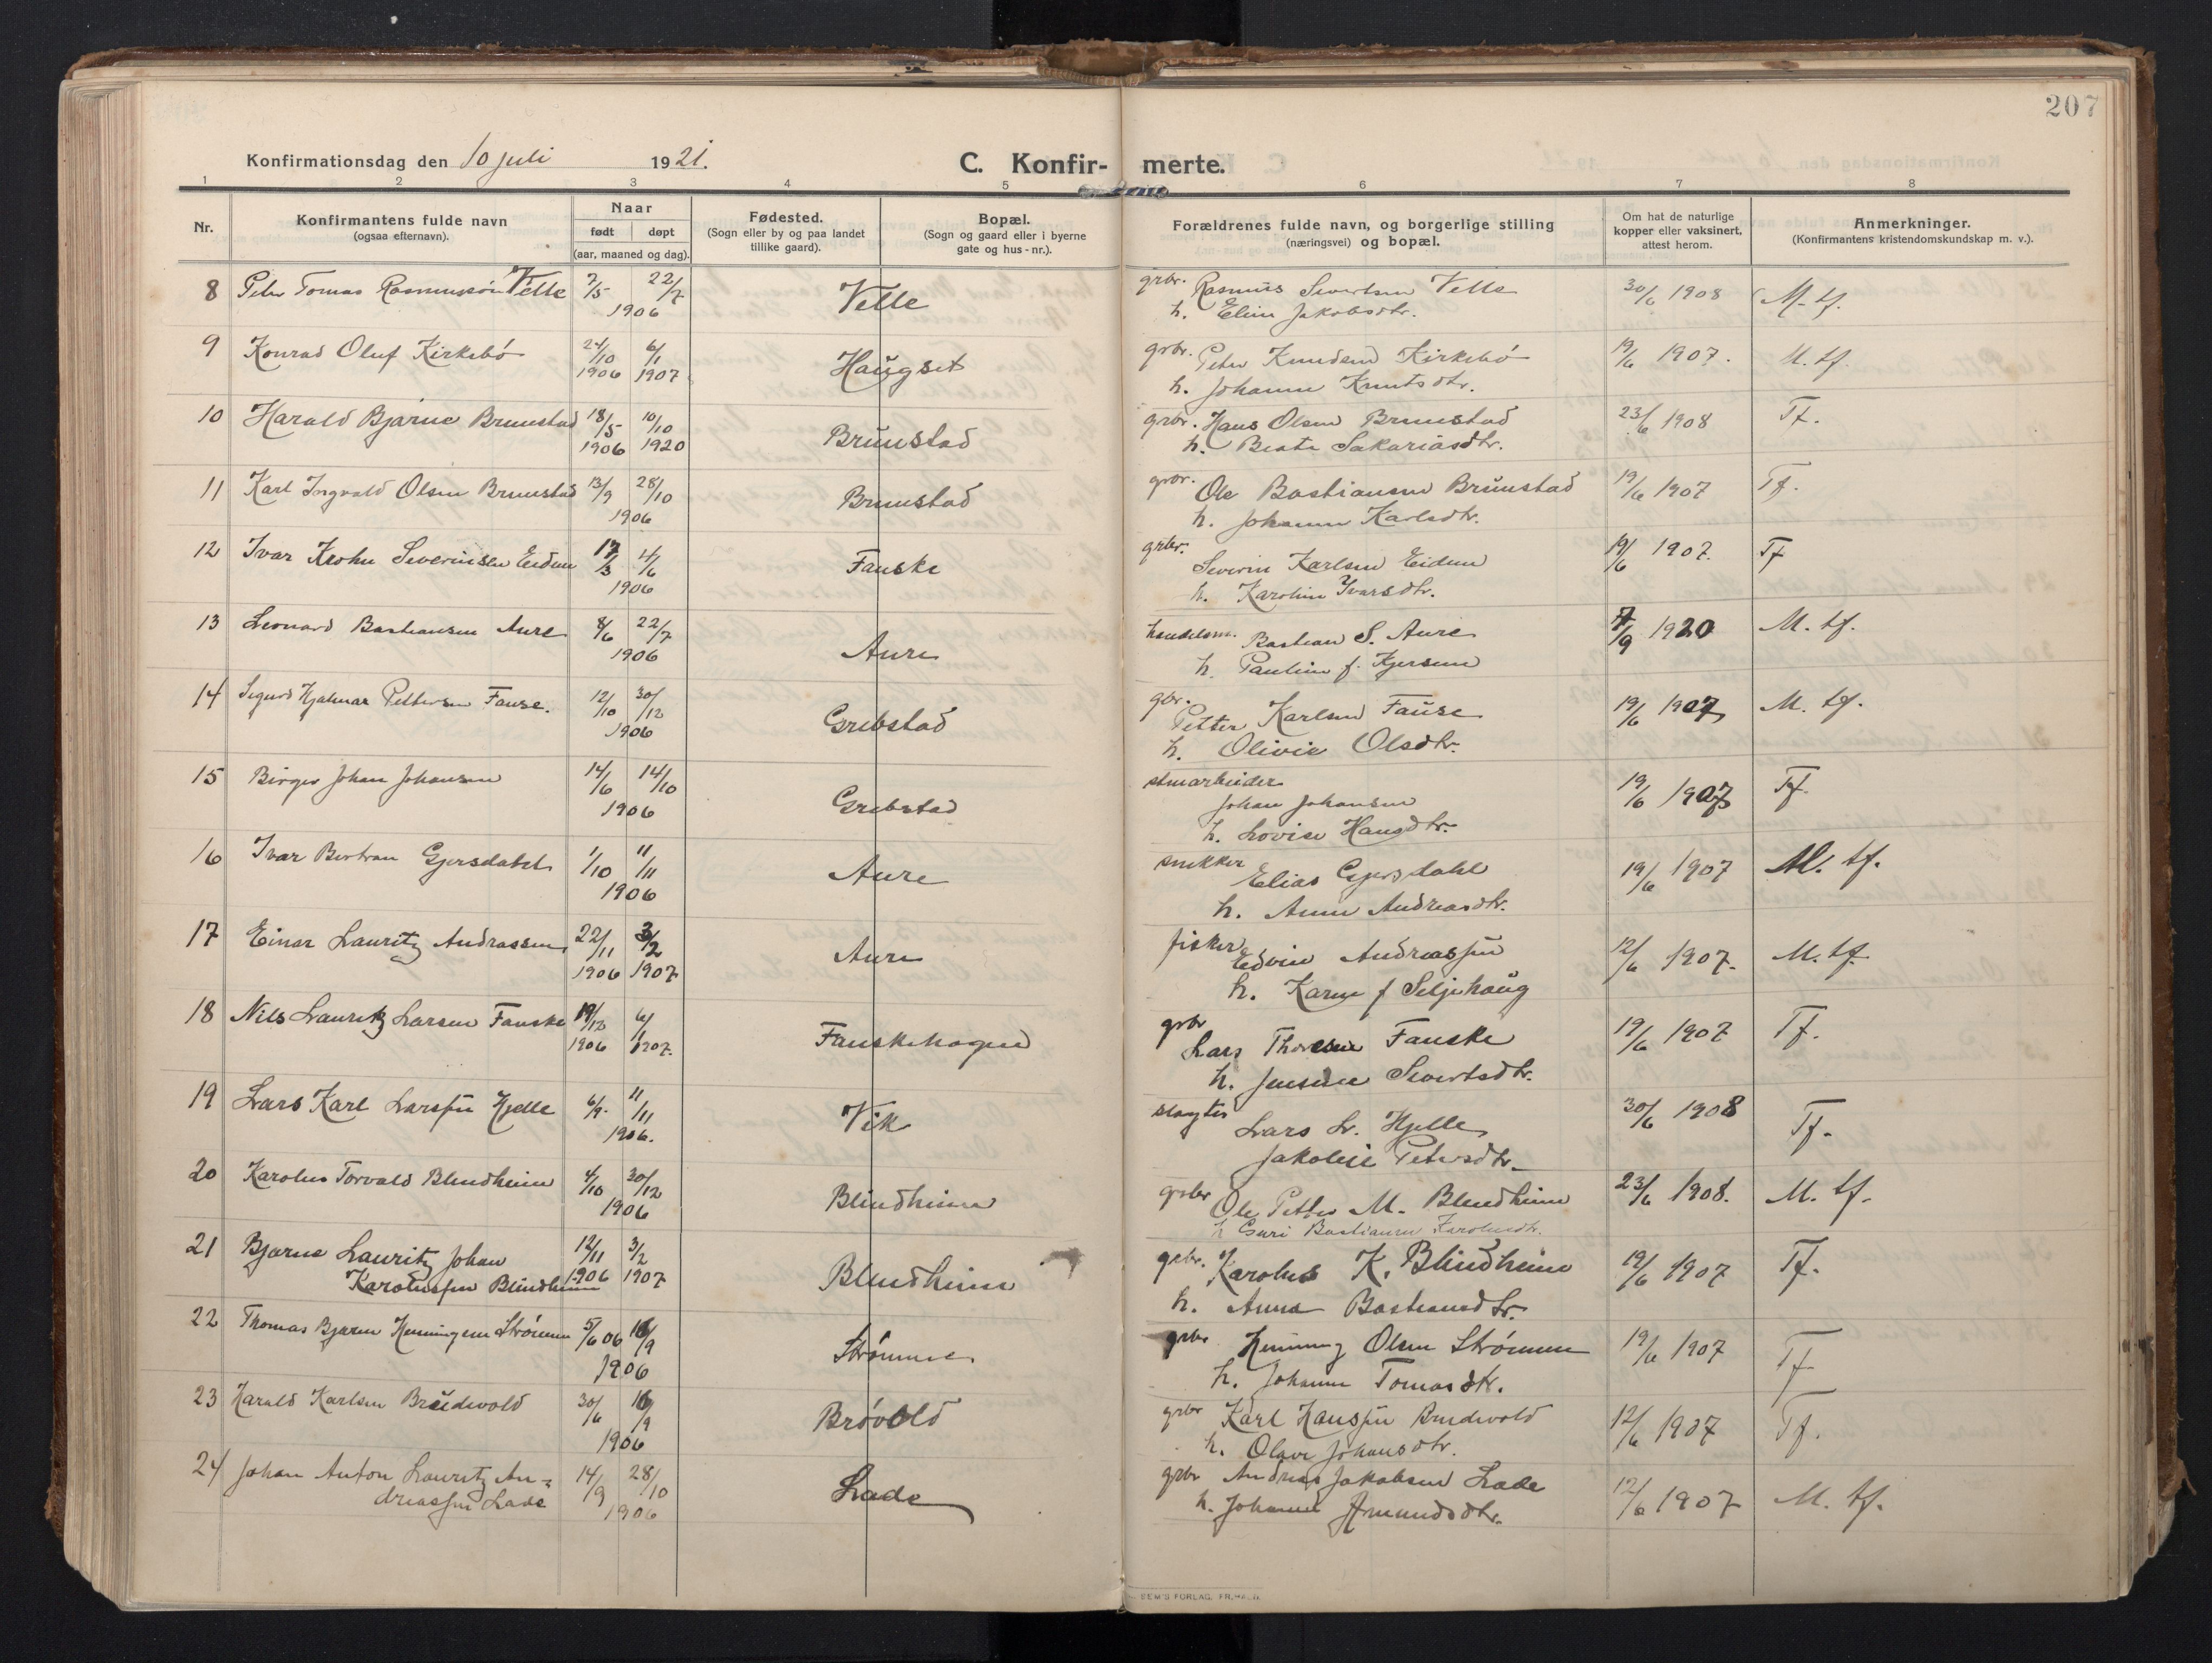 207
Konfirmationsdag den 10 juli 1921.
C. Konfir- merte.
1 2 3 4 5 6 7 8
Nr.
Konfirmantens fulde navn
(ogsaa efternavn).
Naar
født døpt
(aar, maaned og dag).
Fødested.
(Sogn eller by og paa landet
tillike gaard).
Bopæl.
(Sogn og gaard eller i byerne
gate og hus-nr.).
Forældrenes fulde navn, og borgerlige stilling
(næringsvei) og bopæl.
Om hat de naturlige
kopper eller vaksinert,
attest herom.
Anmerkninger.
(Konfirmantens kristendomskundskap m. v.).
8 Peter Tomas Rasmussøn Velle 7/5 22/7 Velle grbr. Rasmus Severtsen Velle 30/6 1908 M. tf.
1906 h. Eline Jakobsdtr.
9 Konrad Oluf Kirkebø 24/10 6/1 Haugset grbr. Peter Knudsen Kirkebø 19/6 1907. M. tf.
1906 1907 h. Johanne Knutsdtr.
10 Harald Bjarne Brunstad 18/5 10/10 Brunstad grbr. Hans Olsen Brunstad 23/6 1908 Tf.
1906 1920 h. Beate Sakariasdtr.
11 Karl Ingvald Olsen Brunstad 13/9 28/10 Brunstad grbr. Ole Bastiansen Brunstad 19/6 1907 Tf.
1906 h. Johanne Karlsdtr.
12 Ivar Krohn Severinsen Eidem 17/3 4/6 Fauske grbr. Severin Karlsen Eidem 19/6 1907. Tf
1906 h. Karolin Ivarsdtr.
13 Leonard Bastiansen Aure 8/6 22/7 Aure handelsm. Bastian S. Aure 7/9 1920 M. tf.
1906 h. Pauline f. Gjersen
14 Sigurd Hjalmar Pettersen Fause. 12/10 30/12 Grebstad gbr. Petter Karlsen Fause 19/6 1907 M. tf.
1906 h. Olivie Olsdtr.
15 Birger Johan Johansen 14/6 14/10 Grebstad stenarbeider 19/6 1907 Tf.
1906 Johan Johansen
h. Lovise Hansdtr.
16 Ivar Bertran Gjersdahl 1/10 11/11 Aure snekker Elias Gjersdahl 19/6 1907 M. tf.
1906 h. Anne Andreasdtr.
17 Einar Lauritz Andreassen 22/11 3/2 Aure fisker Edvin Andreassen 12/6 1907. M. tf.
1906 1907 h. Karen f Seljehaug
18 Nils Lauritz Larsen Fauske 19/12 6/1 Fauskehagen grbr Lars Thoresen Fauske 19/6 1907 Tf.
1906 1907. h. Jensine Severtsdtr.
19 Lars Karl Larssen Hjelle 6/9. 11/11 Vik slagter Lars L. Hjelle 30/6 1908 Tf.
1906. Jakobie Petersdtr.
20 Karolus Torvald Blindheim 4/10 30/12 Blindheim grbr Ole Petter M. Blindheim 23/6 1908. M. tf.
1906 h Guri Bastiane Karolusdtr.
21 Bjarne Lauritz Johan 12/11 3/2 Blindheim grbr. Karolus K. Blindheim 19/6 1907 Tf.
Karolussen Blindheim 1906 1907 h. Anna Bastiansdtr.
22 Thomas Bjarne Henningsen Strömme 5/6 06 16/9 Strömme grbr Henning Olsen Strömme 19/6 1907 Tf
1906 h. Johanne Tomasdtr.
23 Harald Karlsen Breidevold 30/6 16/9 Brövold grbr Karl Hanssen Breidevold 12/6 1907 Tf.
1906 h. Olave Johansdtr.
24 Johan Anton Lauritz An- 14/9 28/10 Lade grbr Andreas Jakobsen Lade 12/6 1907 M. tf.
dreassen Lade 1906 h. Johanne Amundsdtr.
SEM'S FORLAG, FR.HALD.